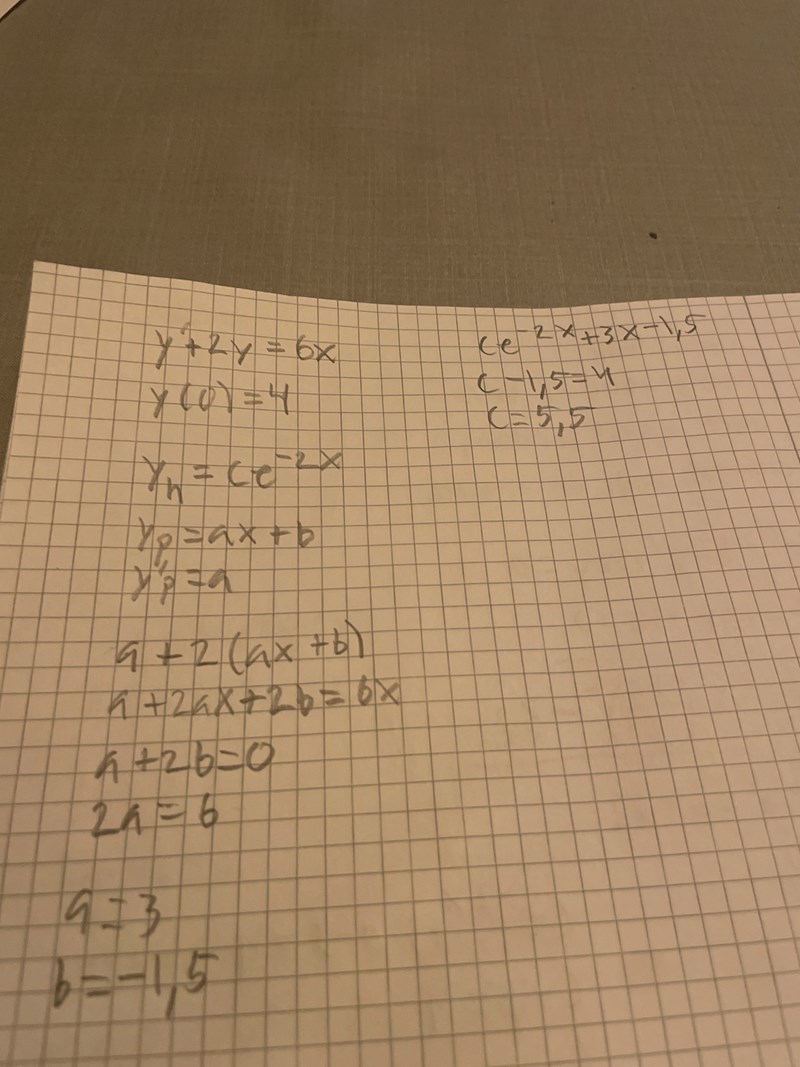 y'+2y=6x
y(0)=4
y_h=ce^{-2x}
y_p=ax+b
y'_p=a
a+2(ax+b)
a+2ax+2b=6x
a+2b=0
2a=6
a=3
b=-1,5
ce^{-2x}+3x-1,5
c-1,5=4
c=5,5